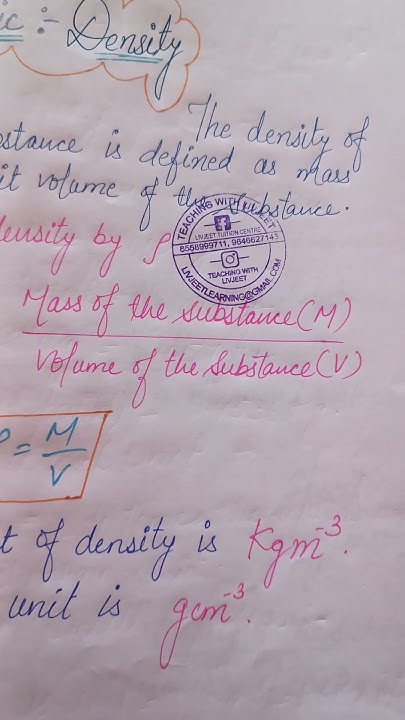 ic :- Density
The density of
bstance is defined as mass
it volume of the substance.
density by ρ
TEACHING WITH LIVJEET
LIVJEET TUITION CENTRE
8556999711, 9646627143
TEACHING WITH
LIVJEET
LIVJEETLEARNING@GMAIL.COM
Mass of the substance (M)
Volume of the substance (V)
ρ = M
V
t of density is Kgm⁻³.
unit is gcm⁻³.